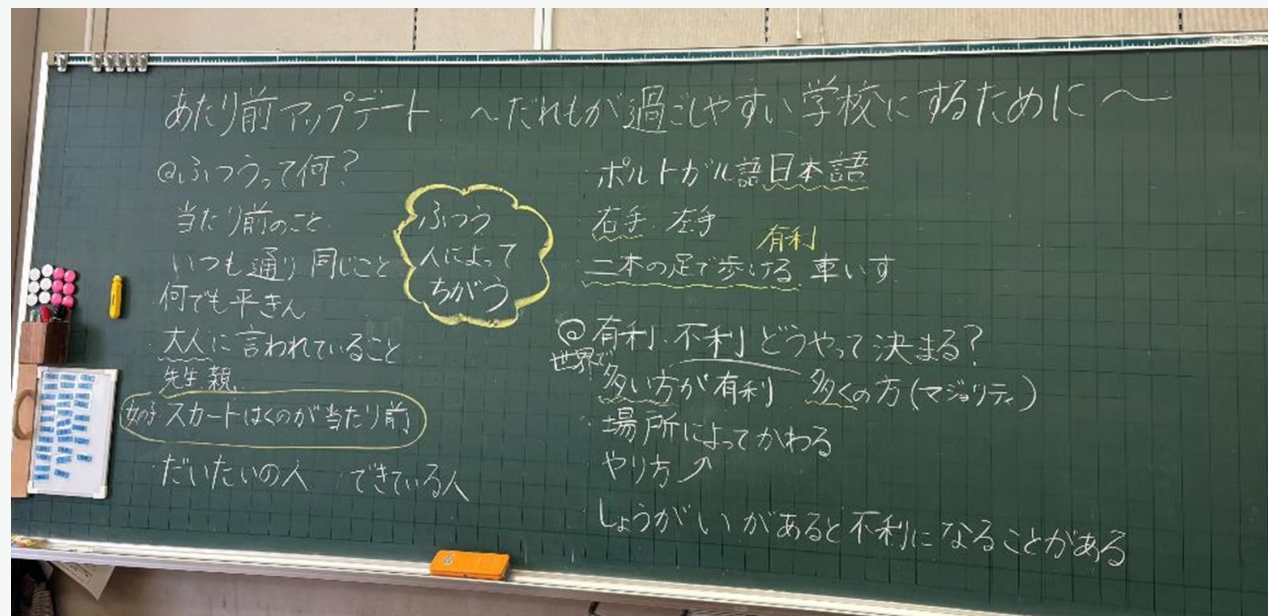 あたり前アップデート ～だれもが過ごしやすい学校にするために～
@ふつうって何？
当たり前のこと
いつも通り 同じこと
何でも平きん
大人に言われていること
先生、親、
女の子 スカートはくのが当たり前
だいたいの人 できている人
ふつう
人によって
ちがう
ポルトガル語 日本語
右手 左手
有利
二本の足で歩ける 車いす
@有利、不利どうやって決まる？
世界で
多い方が有利 多くの方(マジョリティ)
場所によってかわる
やり方↗
しょうがいがあると不利になることがある